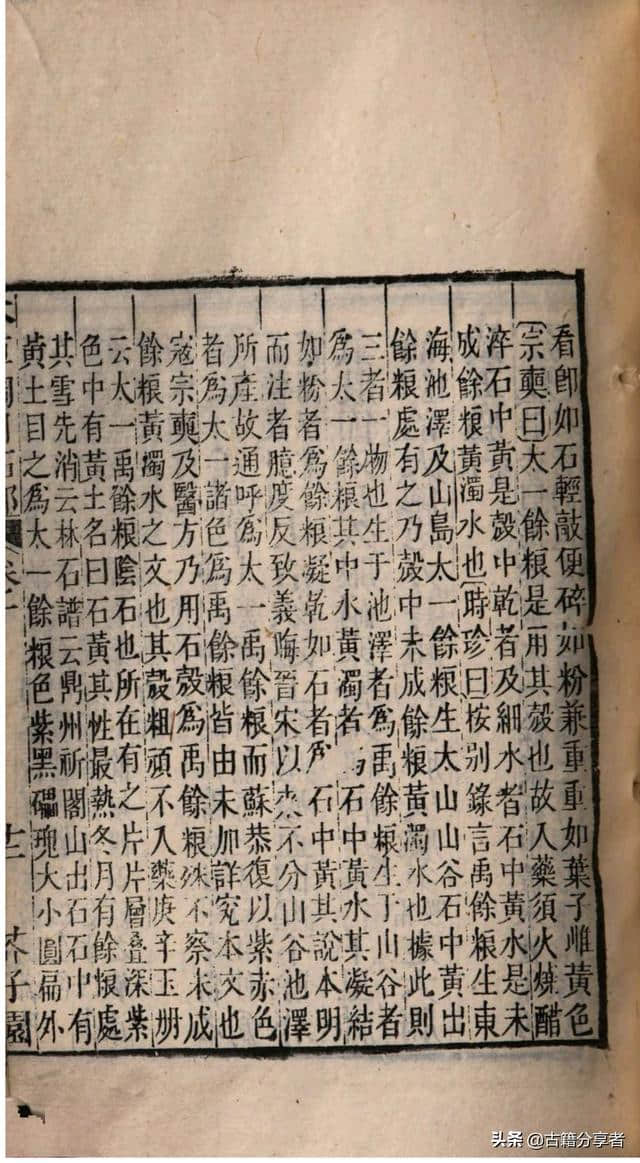 看卽如石輕敲便碎如粉兼重重如葉子雌黃色
宗奭曰太一餘粮是用其殼也故入藥須火燒醋
淬石中黃是殼中乾者及細水者石中黃水是未
成餘粮黃濁水也時珍曰按别錄言禹餘粮生東
海池澤及山島太一餘粮生太山山谷石中黃出
餘粮處有之乃殼中未成餘粮黃濁水也據此則
三者一物也生于池澤者爲禹餘粮生于山谷者
爲太一餘粮其中水黃濁者爲石中黃水其凝結
如粉者爲餘粮凝乾如石者爲石中黃其說本明
而注者臆度反致義晦晉宋以來不分山谷池澤
所產故通呼爲太一禹餘粮而蘇恭復以紫赤色
者爲太一諸色爲禹餘粮皆由未加詳究本文也
寇宗奭及醫方乃用石殼爲禹餘粮殊不察未成
餘粮黃濁水之文也其殼粗頑不入藥庚辛玉册
云太一禹餘粮陰石也所在有之片片層疊深紫
色中有黃土名曰石黃其性最熱冬月有餘粮處
其雪先消云林石譜云鼎州祈閣山出石石中有
黃土目之爲太一餘粮色紫黑礧瑰大小圓扁外
十二 芥子園
头条 @古籍分享者